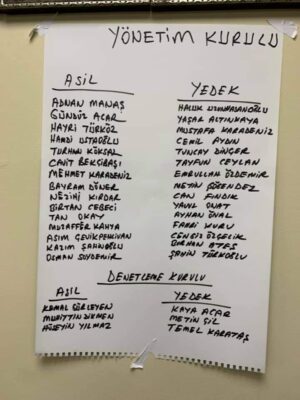 YÖNETİM KURULU
ASİL
ADNAN MANAŞ
GÜNDÜZ ACAR
HAYRİ TÜRKÖZ
HAMDİ USTAOĞLU
TURHAN KÖKSAL
CAVİT BEKÇİBAŞI
MEHMET KARADENİZ
BAYRAM DÖNER
NEZİHİ KIRDAR
GİRTAN CEBECİ
TAN OKAY
MUZAFFER KAHYA
ASIM
KAZIM ŞAHİNOĞLU
OSMAN SOYDEMİR
YEDEK
HALUK UZUNHASANOĞLU
YAŞAR ALTINKAYA
MUSTAFA KARADENİZ
CEMİL AYDIN
TUNCAY DİNÇER
TAYFUN CEYLAN
EMRULLAH ÖZDEMİR
METİN GÖRENDEZ
CAN FINDIK
YAVUZ ONAT
AYHAN ÜNAL
FAHRİ KURU
CENGİZ ÖLÇECİK
BURHAN ATEŞ
ŞAHİN TÜRKOĞLU
DENETLEME KURULU
ASİL
KEMAL GÜRLEYEN
MUHİTTİN DİKMEN
HÜSEYİN YILMAZ
YEDEK
KAYA ACAR
METİN ŞİL
TEMEL KARATAŞ